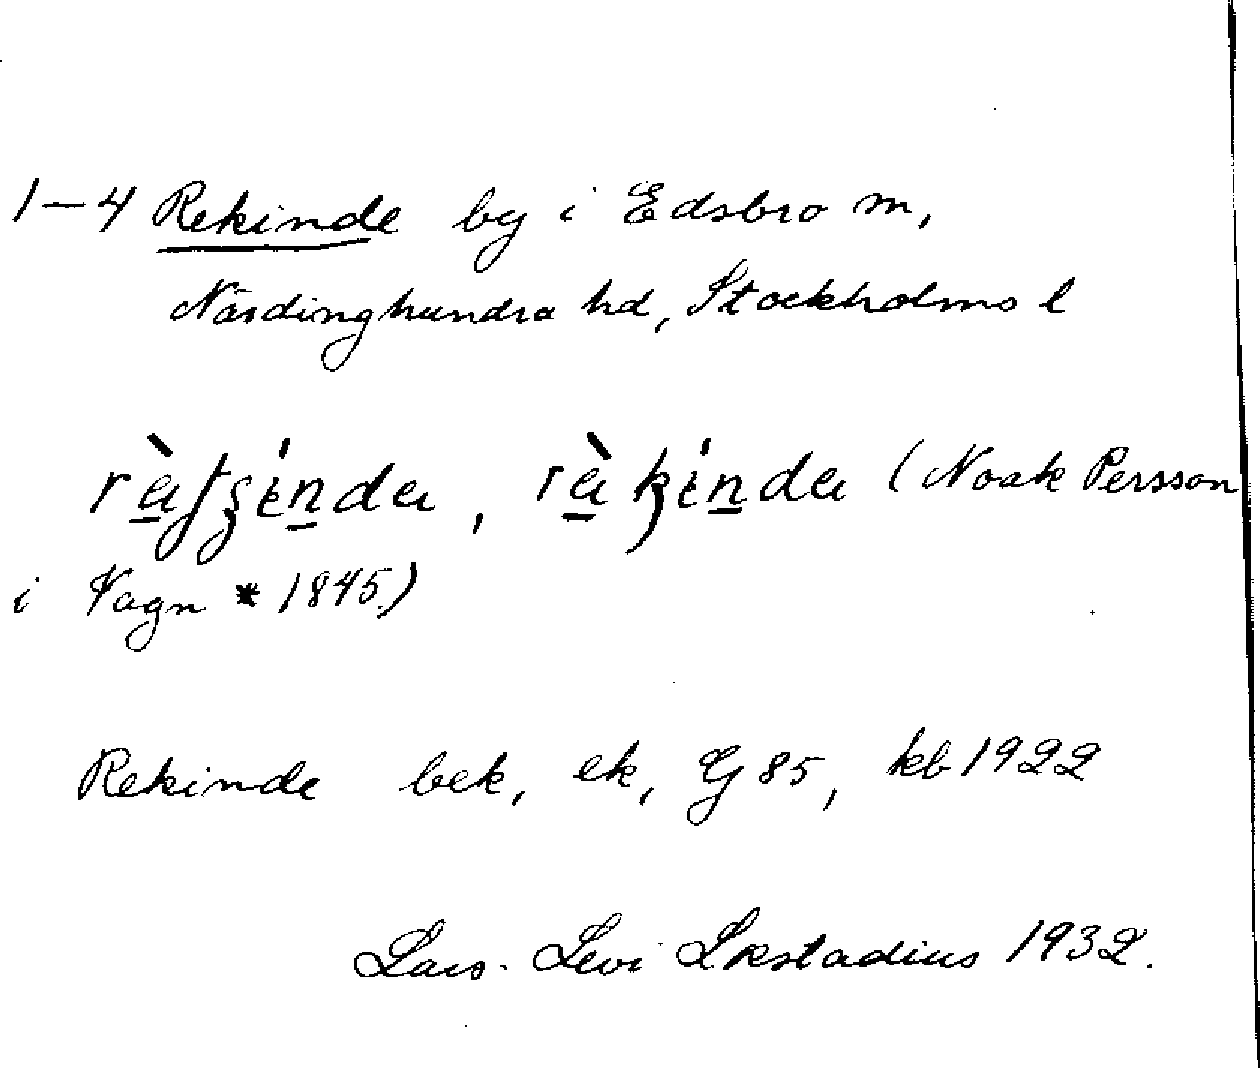 1-4 Rekinde by i Edsbro sn,
Närdinghundra hd, Stockholms l
(Noak Persson
i Vagn * 1845)
Rekinde bek, ek, GJ 85, kb 1922
Lars-Levi Læstadius 1932.